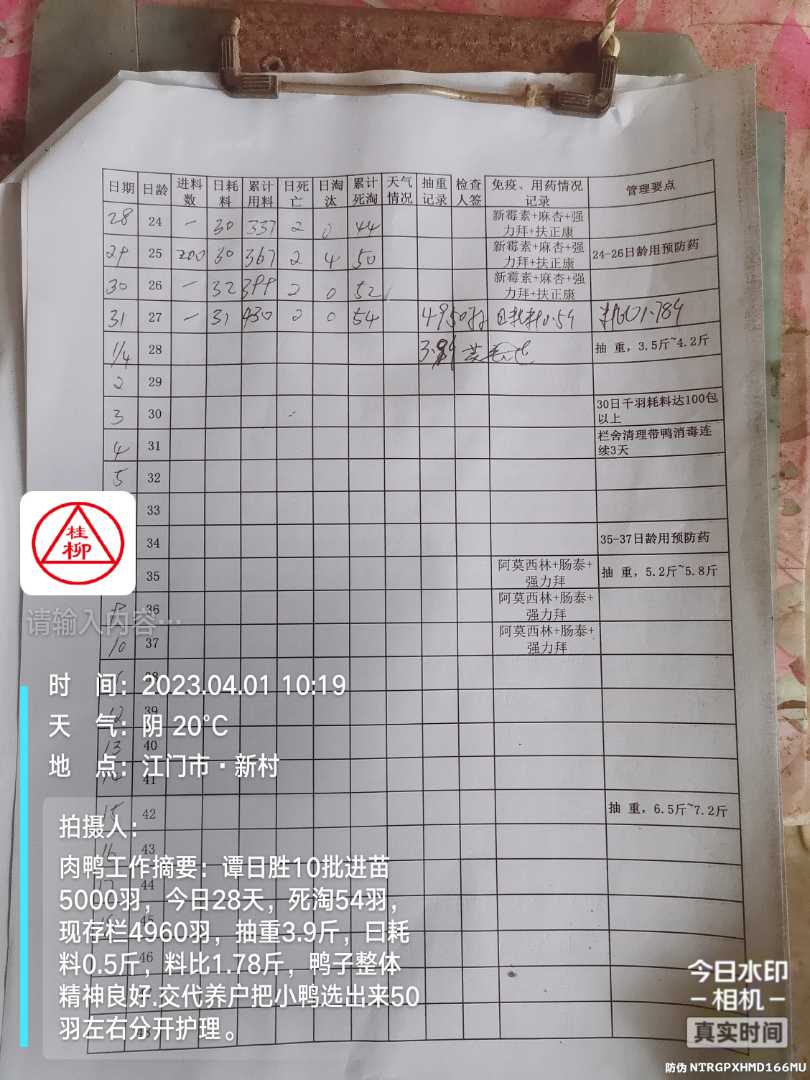 日期 日龄 进料数 日耗料 累计用料 日死亡 日淘汰 累计死淘 天气情况 抽重记录 检查人签 免疫、用药情况记录 管理要点
28 24 一 30 337 2 0 44 新霉素+麻杏+强力拜+扶正康
29 25 200 30 367 2 4 50 新霉素+麻杏+强力拜+扶正康 24-26日龄用预防药
30 26 一 32 399 2 0 52 新霉素+麻杏+强力拜+扶正康
31 27 一 31 430 2 0 54 4950羽 日耗料0.5斤 1.78斤
1/4 28 3.9斤 抽 重，3.5斤~4.2斤
2 29
3 30 30日千羽耗料达100包以上
4 31 栏舍清理带鸭消毒连续3天
5 32
33
34 35-37日龄用预防药
35 阿莫西林+肠泰+强力拜 抽 重，5.2斤~5.8斤
36 阿莫西林+肠泰+强力拜
10 37 阿莫西林+肠泰+强力拜
12 39
13 40
41
15 42 抽 重，6.5斤~7.2斤
16 43
44
45
46
桂
柳
请输入内容…
时 间：2023.04.01 10:19
天 气：阴 20°C
地 点：江门市·新村
拍摄人：
肉鸭工作摘要：谭日胜10批进苗
5000羽，今日28天，死淘54羽，
现存栏4960羽，抽重3.9斤，日耗
料0.5斤，料比1.78斤，鸭子整体
精神良好.交代养户把小鸭选出来50
羽左右分开护理。
今日水印
相机
真实时间
防伪 NTRGPXHMD166MU